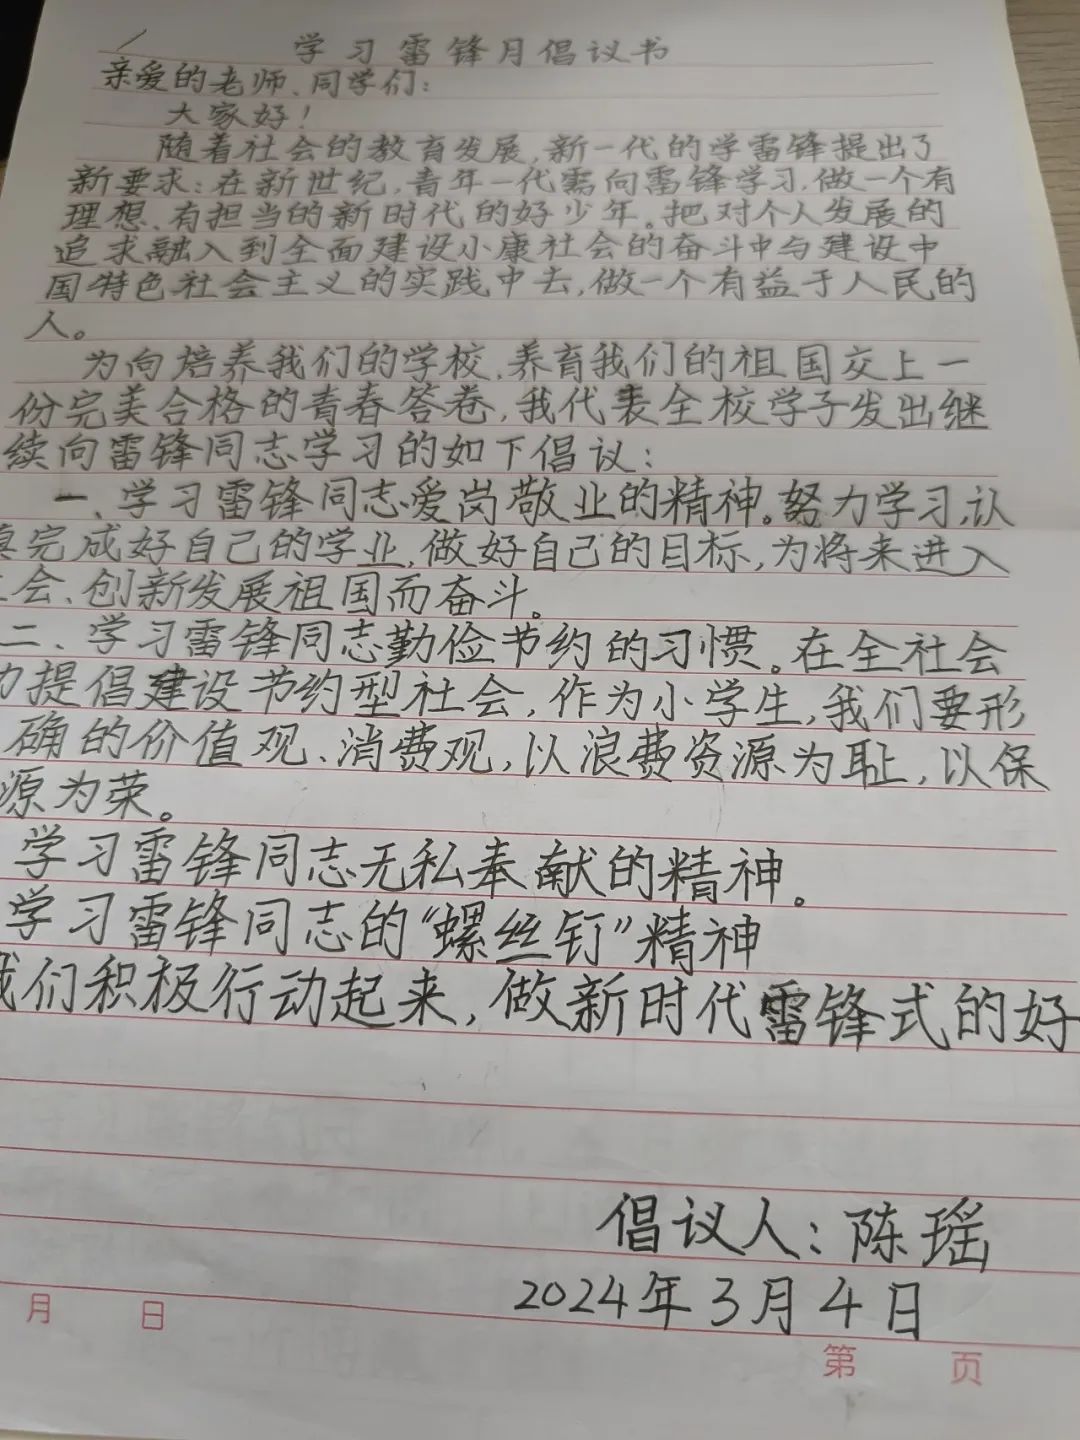 学习雷锋月倡议书
亲爱的老师、同学们：
大家好！
随着社会的教育发展，新一代的学雷锋提出了
新要求：在新世纪，青年一代需向雷锋学习，做一个有
理想、有担当的新时代的好少年。把对个人发展的
追求融入到全面建设小康社会的奋斗中与建设中
国特色社会主义的实践中去，做一个有益于人民的
人。
为向培养我们的学校、养育我们的祖国交上一
份完美合格的青春答卷，我代表全校学子发出继
续向雷锋同志学习的如下倡议：
一、学习雷锋同志爱岗敬业的精神。努力学习，认
真完成好自己的学业，做好自己的目标，为将来进入
会、创新发展祖国而奋斗。
二、学习雷锋同志勤俭节约的习惯。在全社会
力提倡建设节约型社会，作为小学生，我们要形
确的价值观、消费观，以浪费资源为耻，以保
源为荣。
学习雷锋同志无私奉献的精神。
学习雷锋同志的“螺丝钉”精神
我们积极行动起来，做新时代雷锋式的好
倡议人：陈瑶
2024年3月4日
月 日
第 页